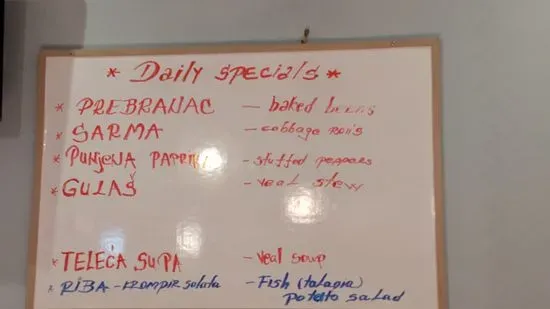 * Daily SPECIALS *
* PREBRANAC - baked beans
* SARMA - cabbage rolls
* PUNJENA PAPRIKA - stuffed peppers
* GULAŠ - veal stew
* TELEĆA SUPA - Veal soup
* RIBA - KROMPIR salata - Fish (talapia)
potato salad